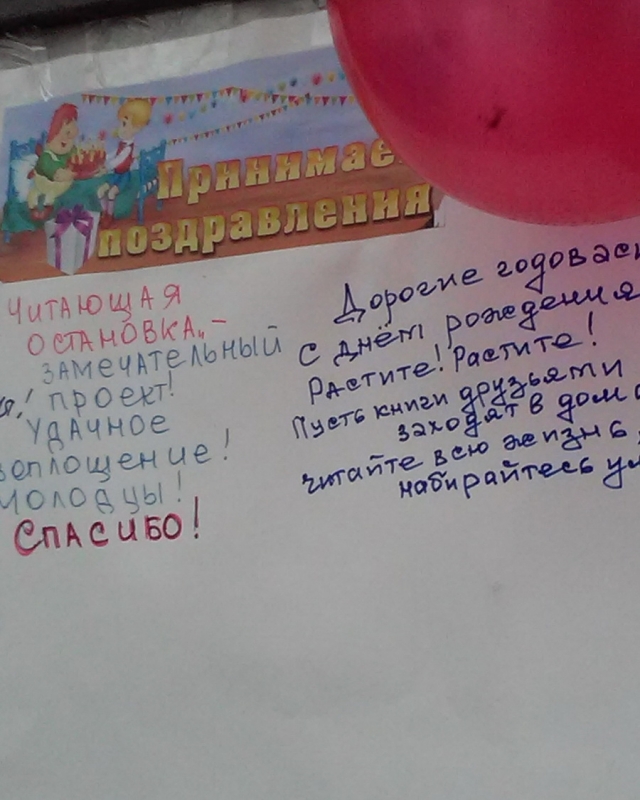 Принимае
поздравления
Читающая
остановка" –
замечательный
проект!
Удачное
воплощение!
Молодцы!
Спасибо!
Дорогие годовас
С днём рождения
Растите! Растите!
Пусть книги друзьями
заходят в дом
Читайте всю жизнь,
набирайтесь ум